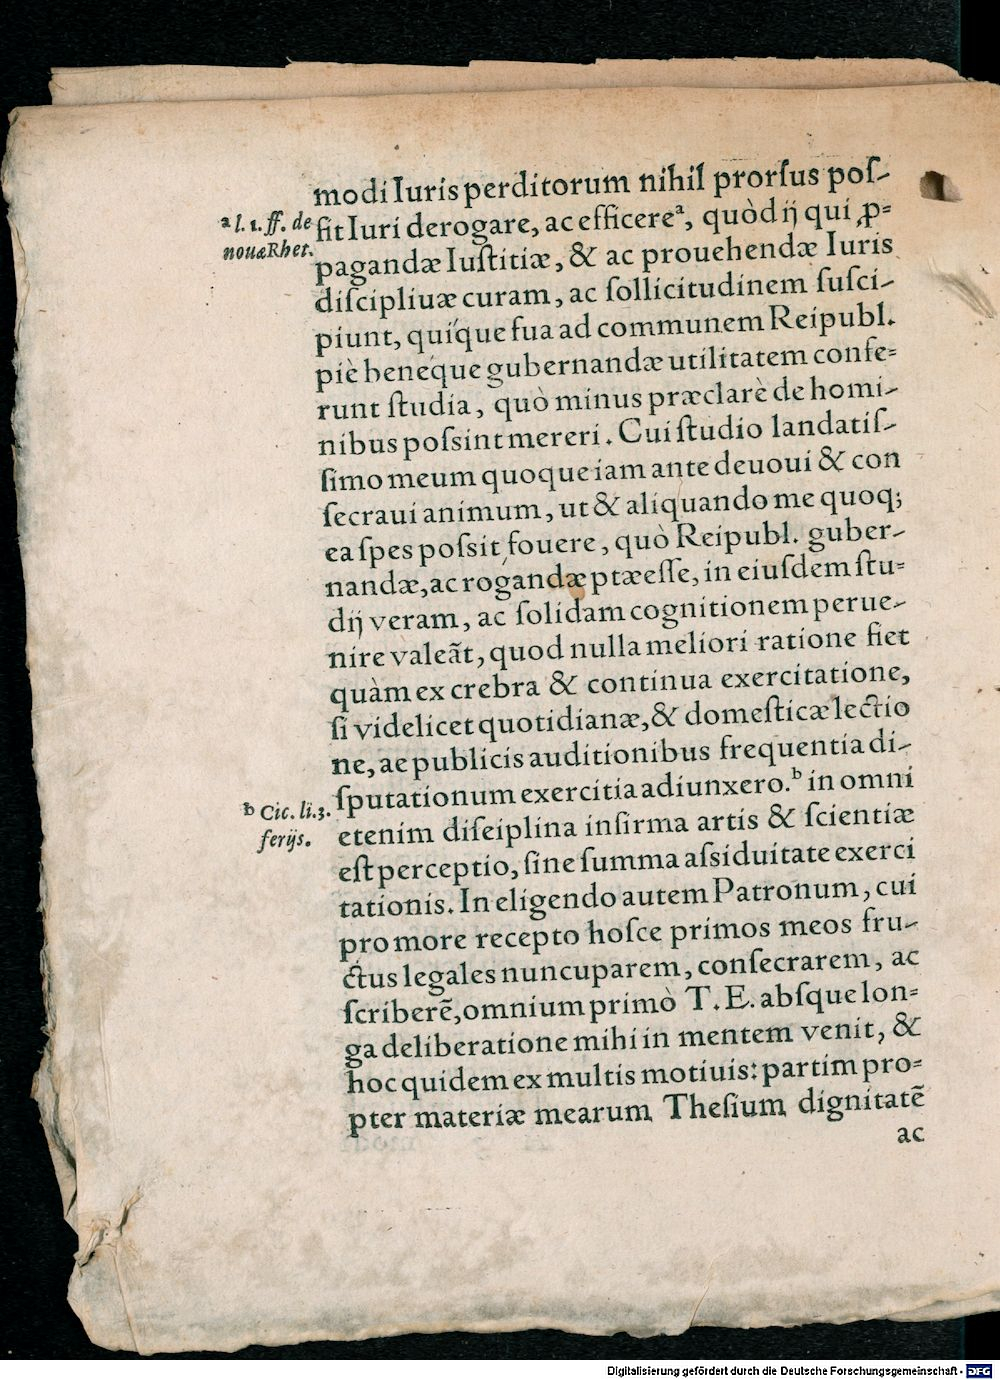 modi Iuris perditorum nihil prorſus poſ-
ᵃ l. 1. ff. de
nouæ Rhet.
ſit Iuri derogare, ac efficereᵃ, quòd ij qui ꝓ-
pagandæ Iuſtitiæ, & ac prouehendæ Iuris
diſcipliuæ curam, ac ſollicitudinem ſuſci-
piunt, quíque ſua ad communem Reipubl.
piè benéque gubernandæ utilitatem confe-
runt ſtudia, quò minus præclarè de homi-
nibus poſsint mereri. Cui ſtudio landatiſ-
ſimo meum quoque iam ante deuoui & con
ſecraui animum, ut & aliquando me quoq;
ea ſpes poſsit fouere, quò Reipubl. guber-
nandæ, ac rogandæ ptæeſſe, in eiuſdem ſtu-
dij veram, ac ſolidam cognitionem perue-
nire valeãt, quod nulla meliori ratione fiet
quàm ex crebra & continua exercitatione,
ſi videlicet quotidianæ, & domeſticæ lectio
ne, ae publicis auditionibus frequentia di-
ſputationum exercitia adiunxero.ᵇ in omni
ᵇ Cic. li. 3.
ferijs.
etenim diſeiplina infirma artis & ſcientiæ
eſt perceptio, ſine ſumma aſsiduitate exerci
tationis. In eligendo autem Patronum, cui
pro more recepto hoſce primos meos fru-
ctus legales nuncuparem, conſecrarem, ac
ſcriberẽ, omnium primò T. E. abſque lon-
ga deliberatione mihi in mentem venit, &
hoc quidem ex multis motiuis: partim pro-
pter materiæ mearum Theſium dignitatẽ
ac
Digitalisierung gefördert durch die Deutsche Forschungsgemeinschaft - DFG